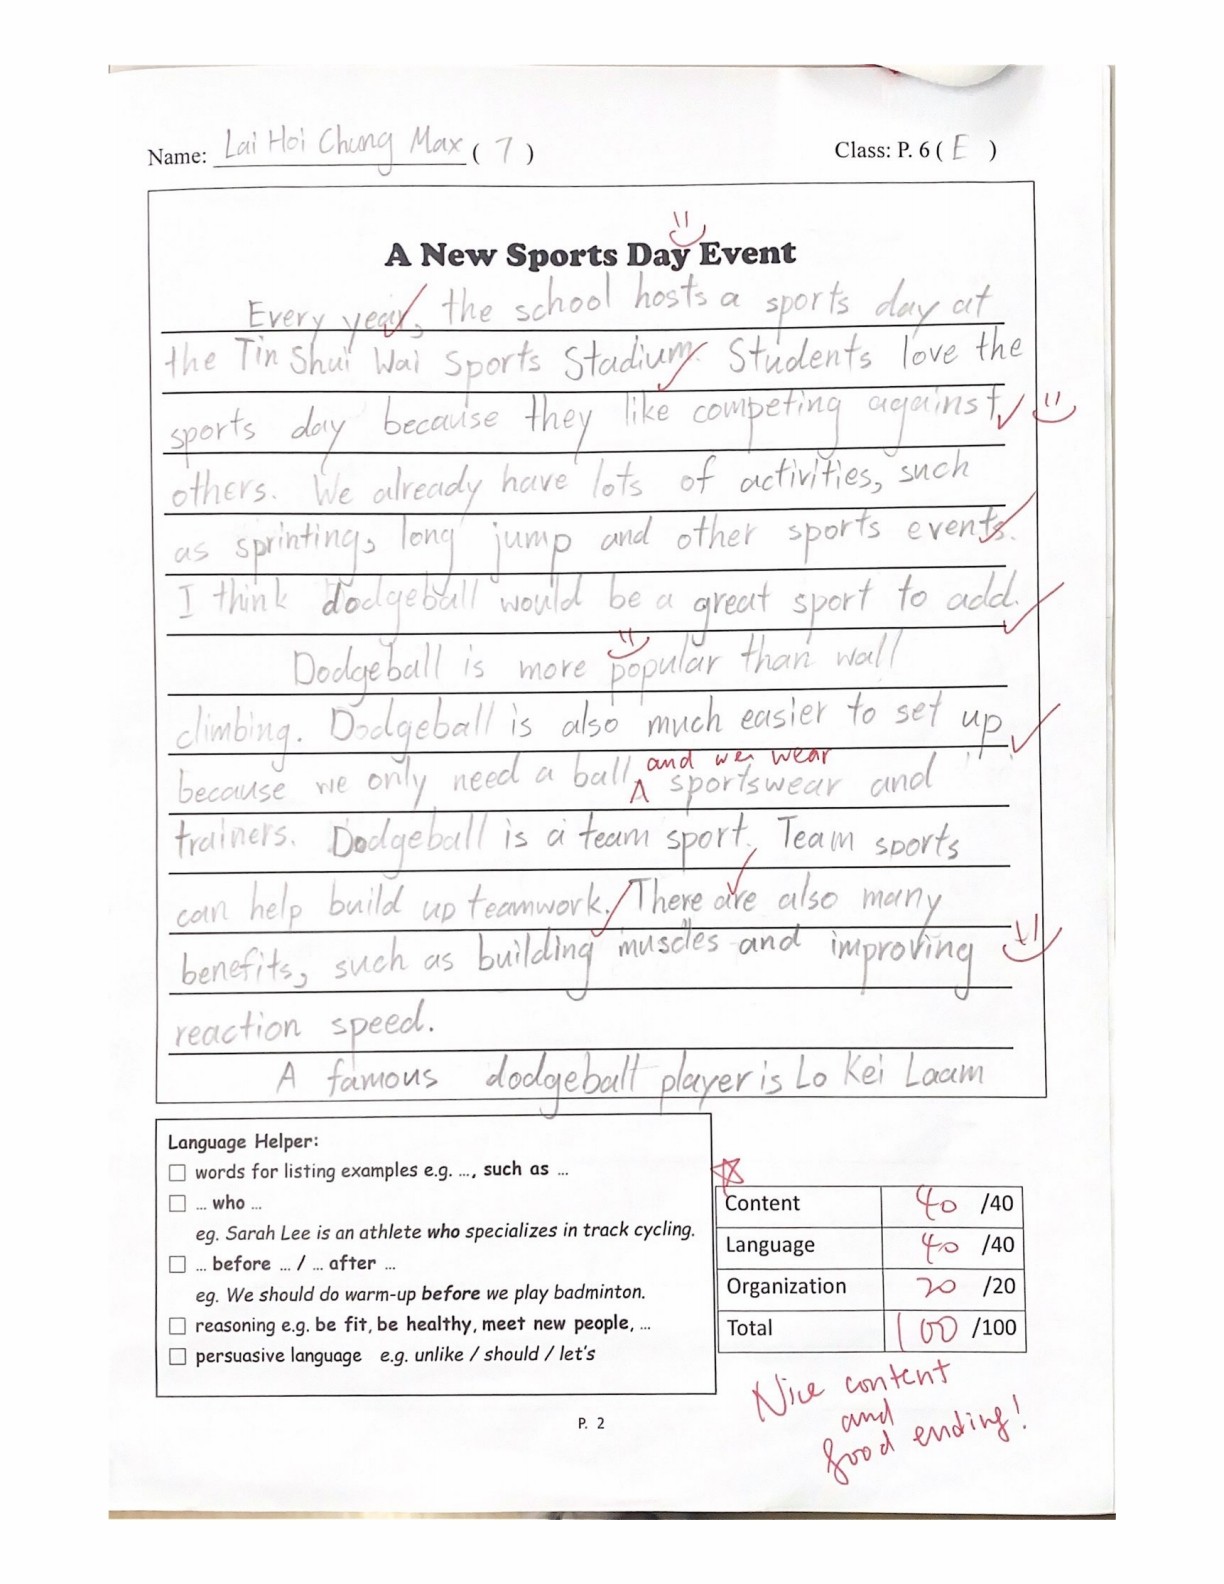 Name: Lai Hoi Chung Max ( 7 ) Class: P. 6 ( E )
A New Sports Day Event
Every year, the school hosts a sports day at
the Tin Shui Wai Sports Stadium. Students love the
sports day because they like competing against
others. We already have lots of activities, such
as sprinting, long jump and other sports events.
I think dodgeball would be a great sport to add.
Dodgeball is more popular than wall
climbing. Dodgeball is also much easier to set up
and we wear
because we only need a ball, sportswear and
trainers. Dodgeball is a team sport. Team sports
can help build up teamwork. There are also many
benefits, such as building muscles and improving
reaction speed.
A famous dodgeball player is Lo Kei Laam
Language Helper:
words for listing examples e.g. ..., such as ...
... who ...
eg. Sarah Lee is an athlete who specializes in track cycling.
... before ... / ... after ...
eg. We should do warm-up before we play badminton.
reasoning e.g. be fit, be healthy, meet new people, ...
persuasive language e.g. unlike / should / let's
Content 40 /40
Language 40 /40
Organization 20 /20
Total 100 /100
Nice content
and
good ending!
P. 2